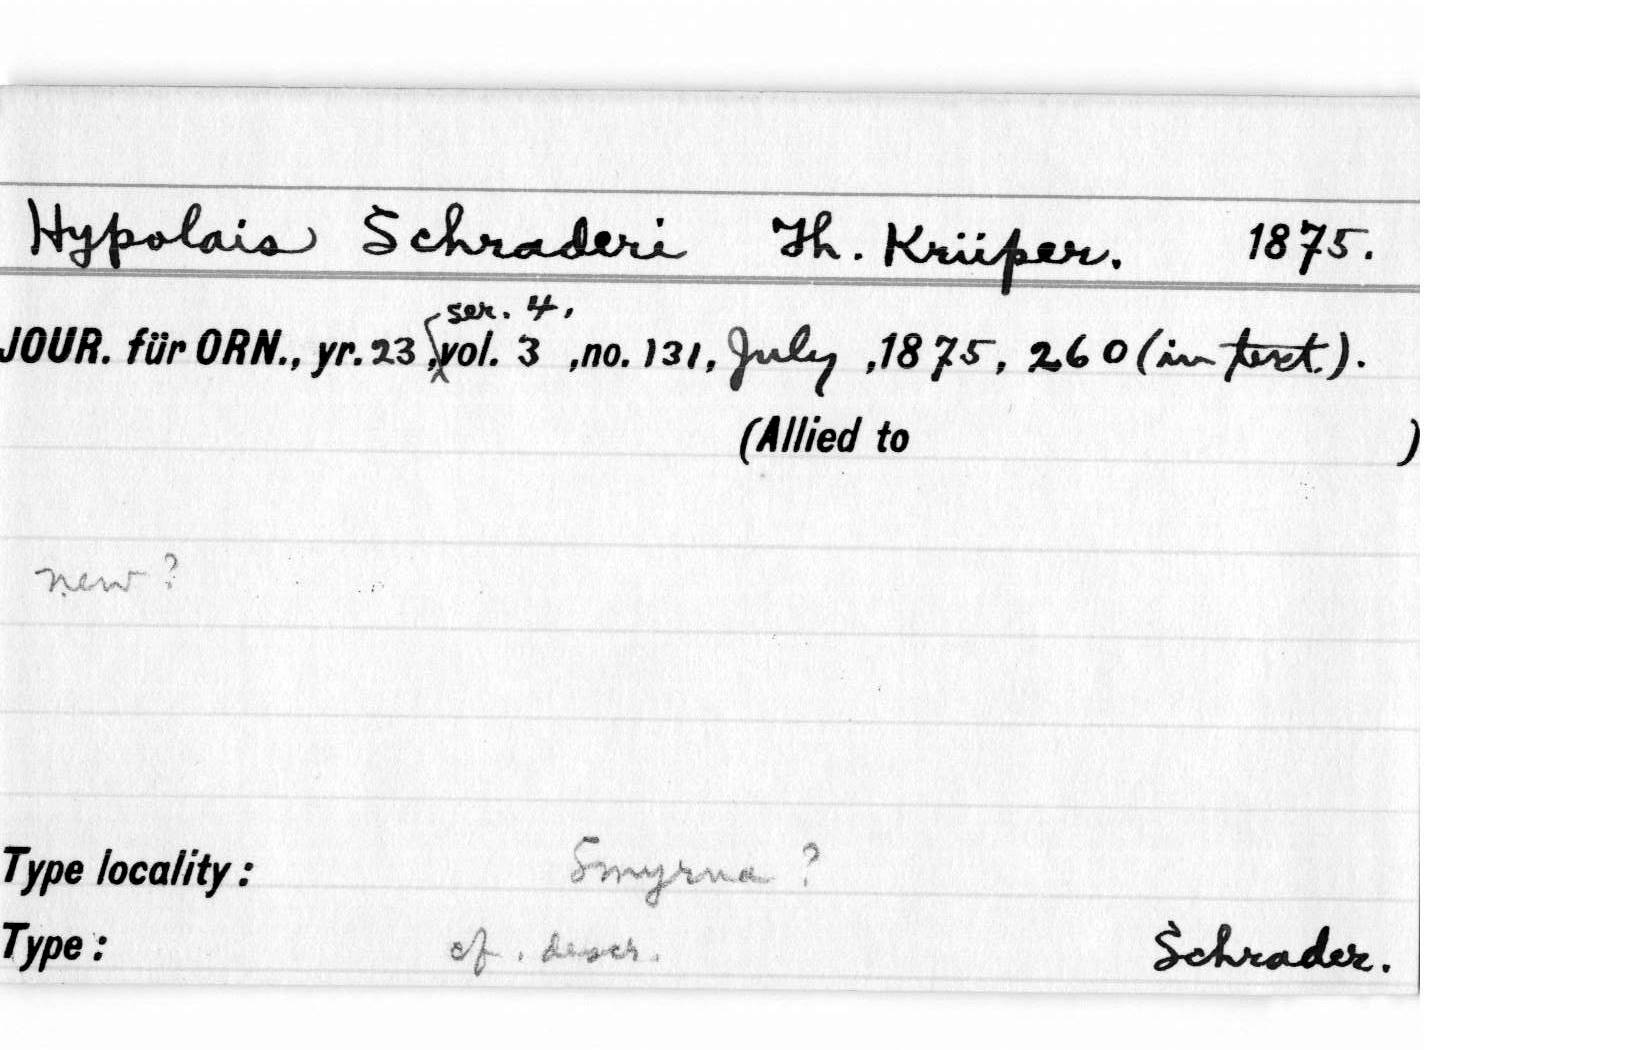 Hypolais Schraderi Th. Krüper. 1875.
ser. 4,
JOUR. für ORN., yr. 23, vol. 3, no. 131, July, 1875, 260 (in text.).
(Allied to )
new ?
Type locality: Smyrna ?
Type: cf. descr. Schrader.